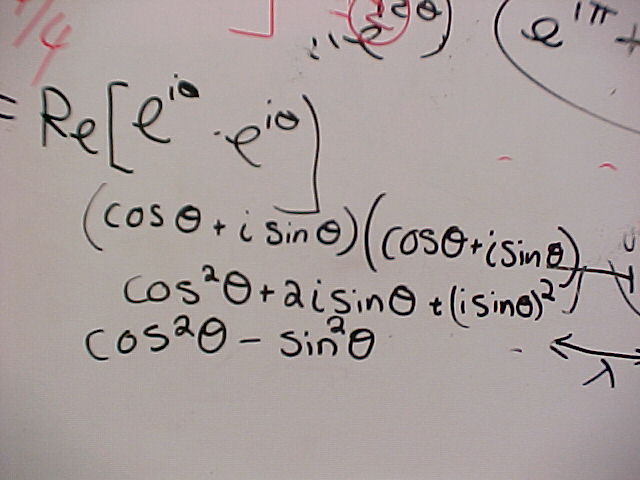 1/4 e^i2θ) (e^iπ +
= Re[e^iθ · e^iθ]
(cos θ + i sin θ)(cosθ+isinθ)
cos²θ + 2isinθ + (isinθ)²
cos²θ − sin²θ
λ